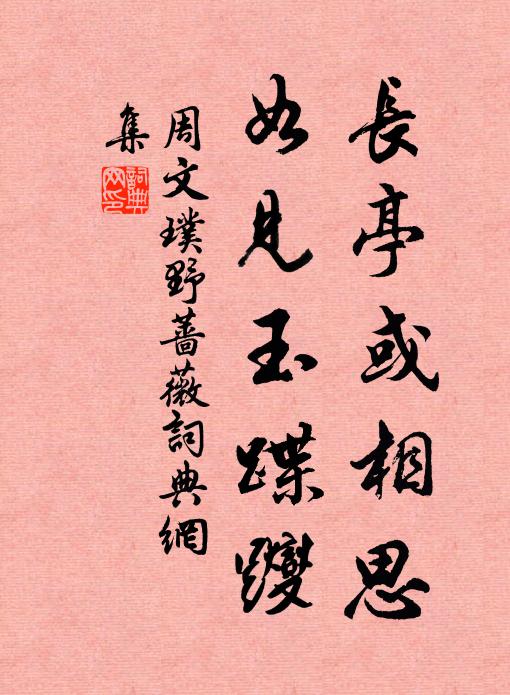 長亭或相思
如見玉蹀躞
周文璞野薔薇詞典網
集
詞典網印